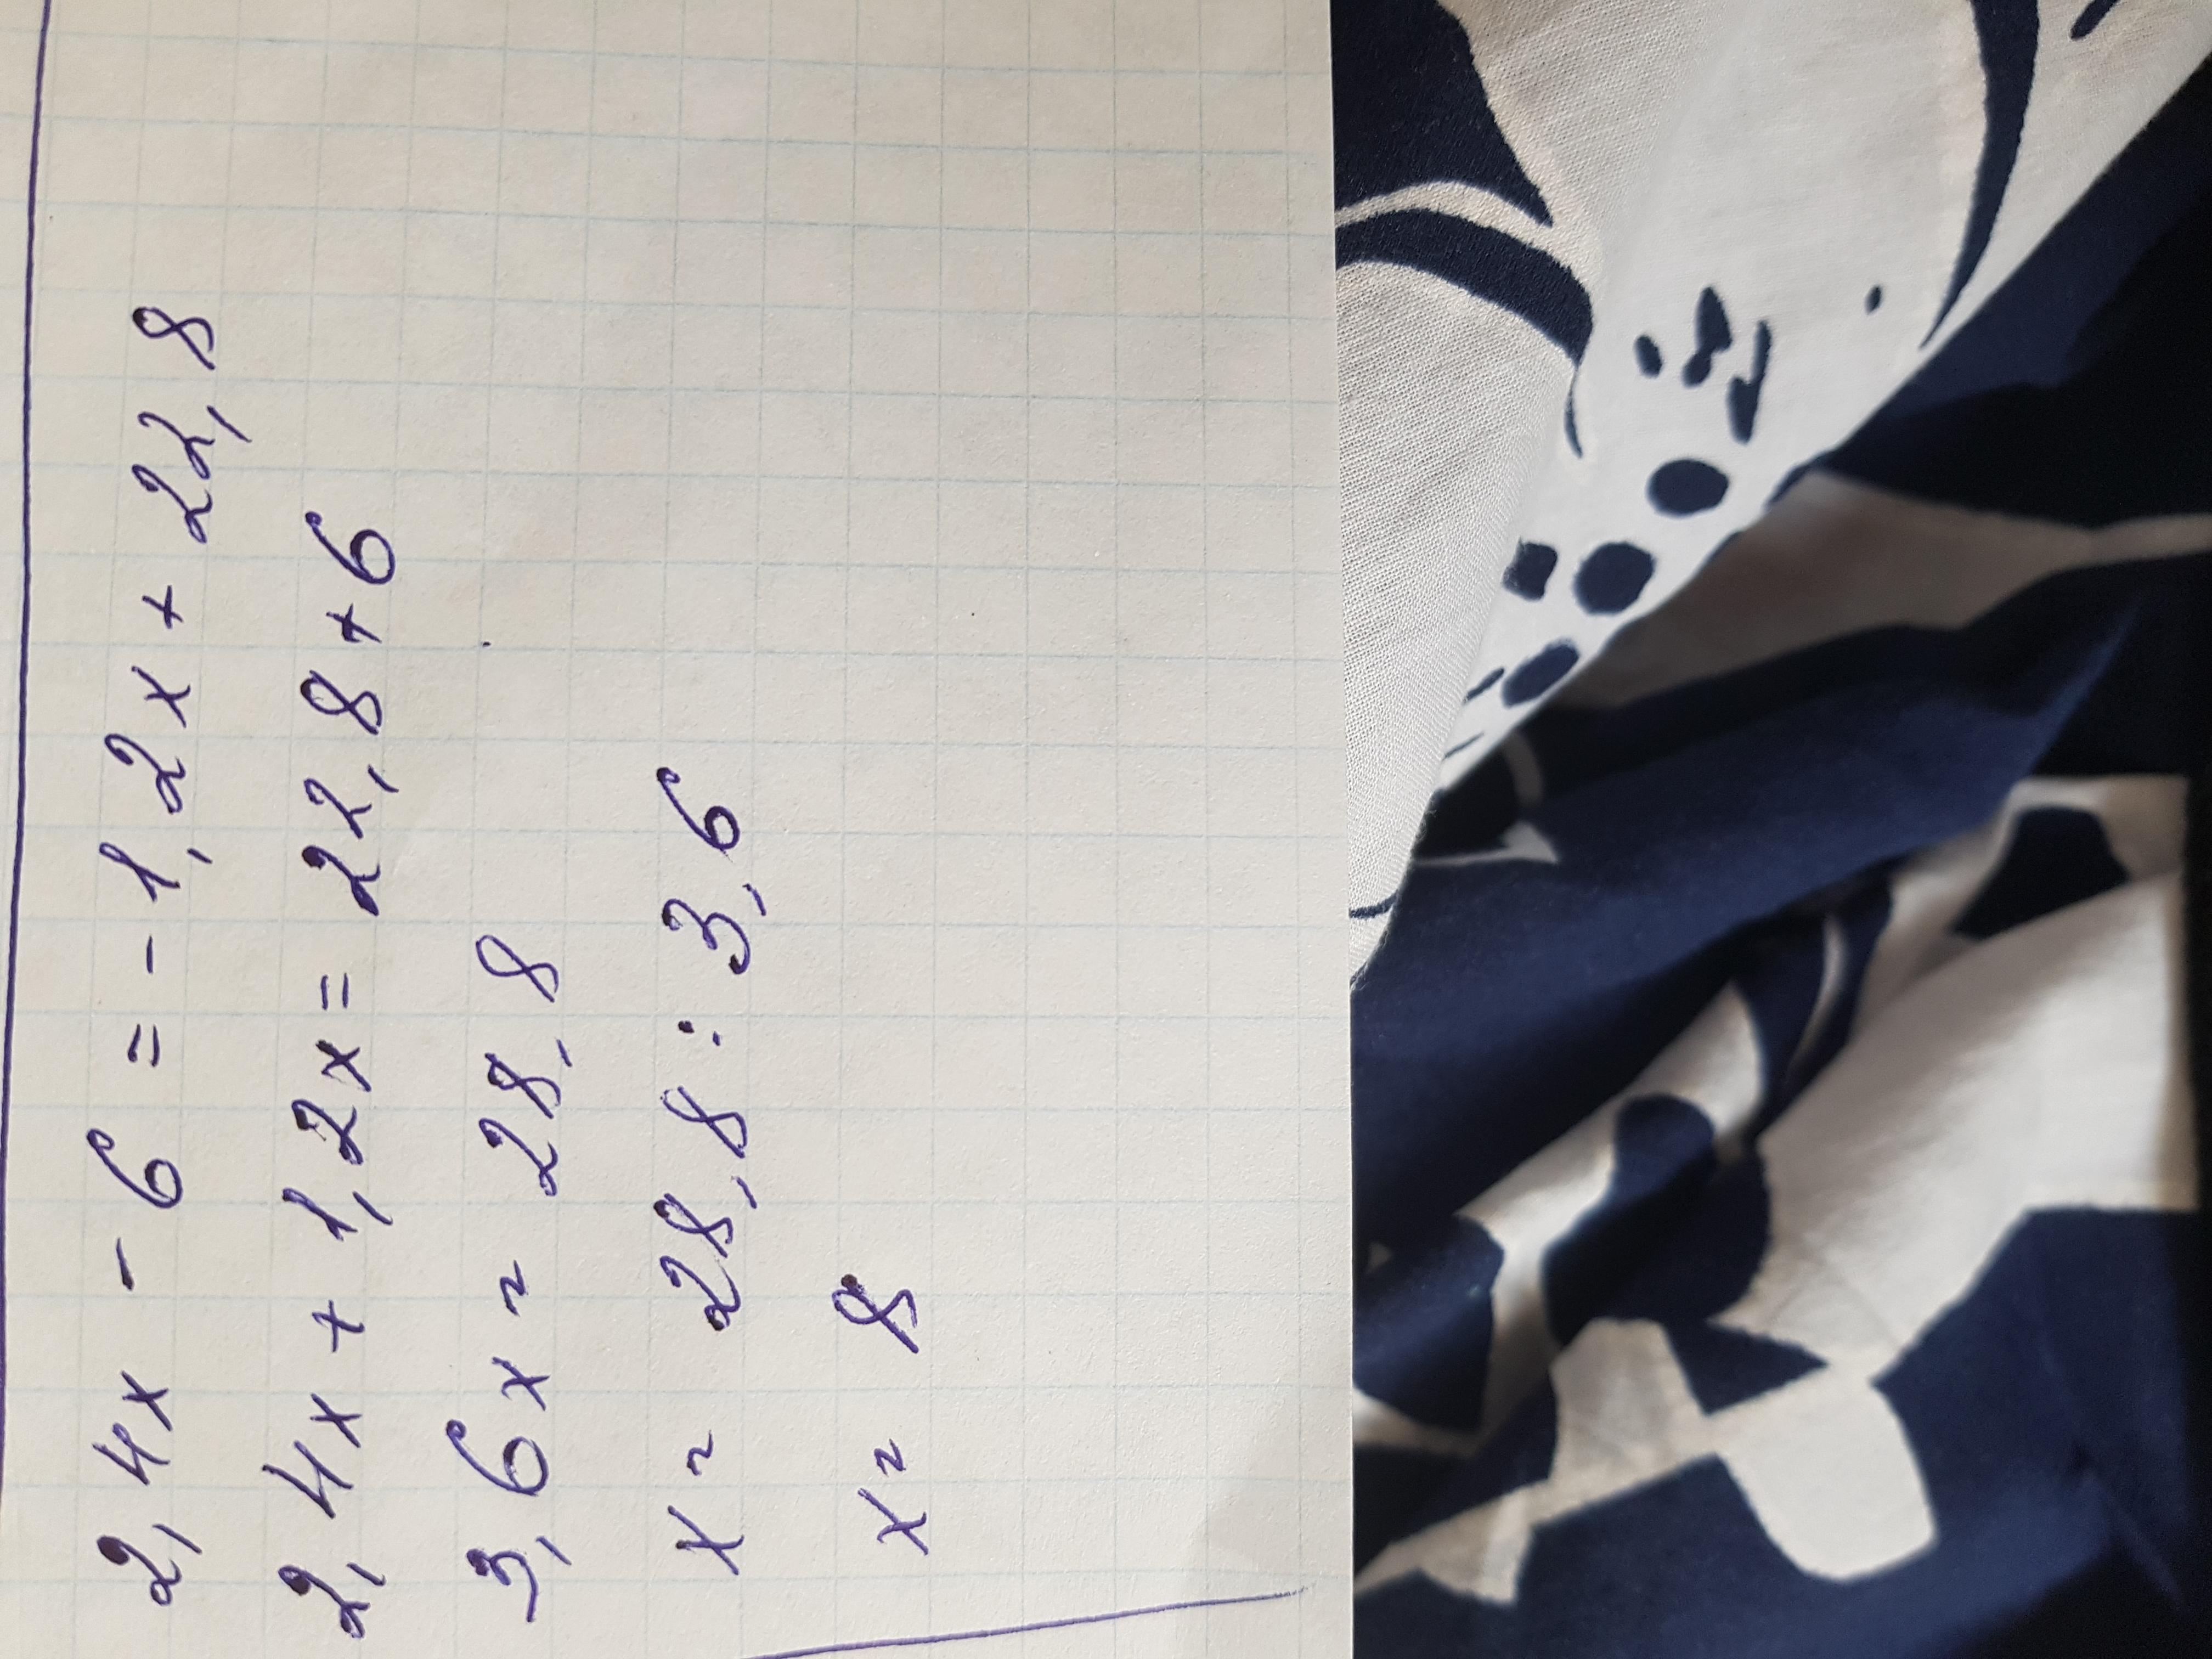 2,4x - 6 = - 1,2x + 22,8
2,4x + 1,2x = 22,8 + 6
3,6x = 28,8
x = 28,8 : 3,6
x = 8